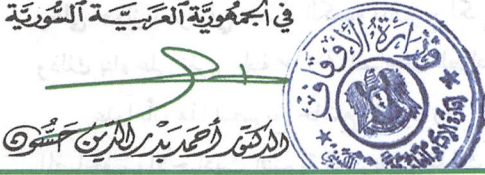 في الجمهورية العربية السورية
الدكتور أحمد بدر الدين حسون
وزارة الأوقاف